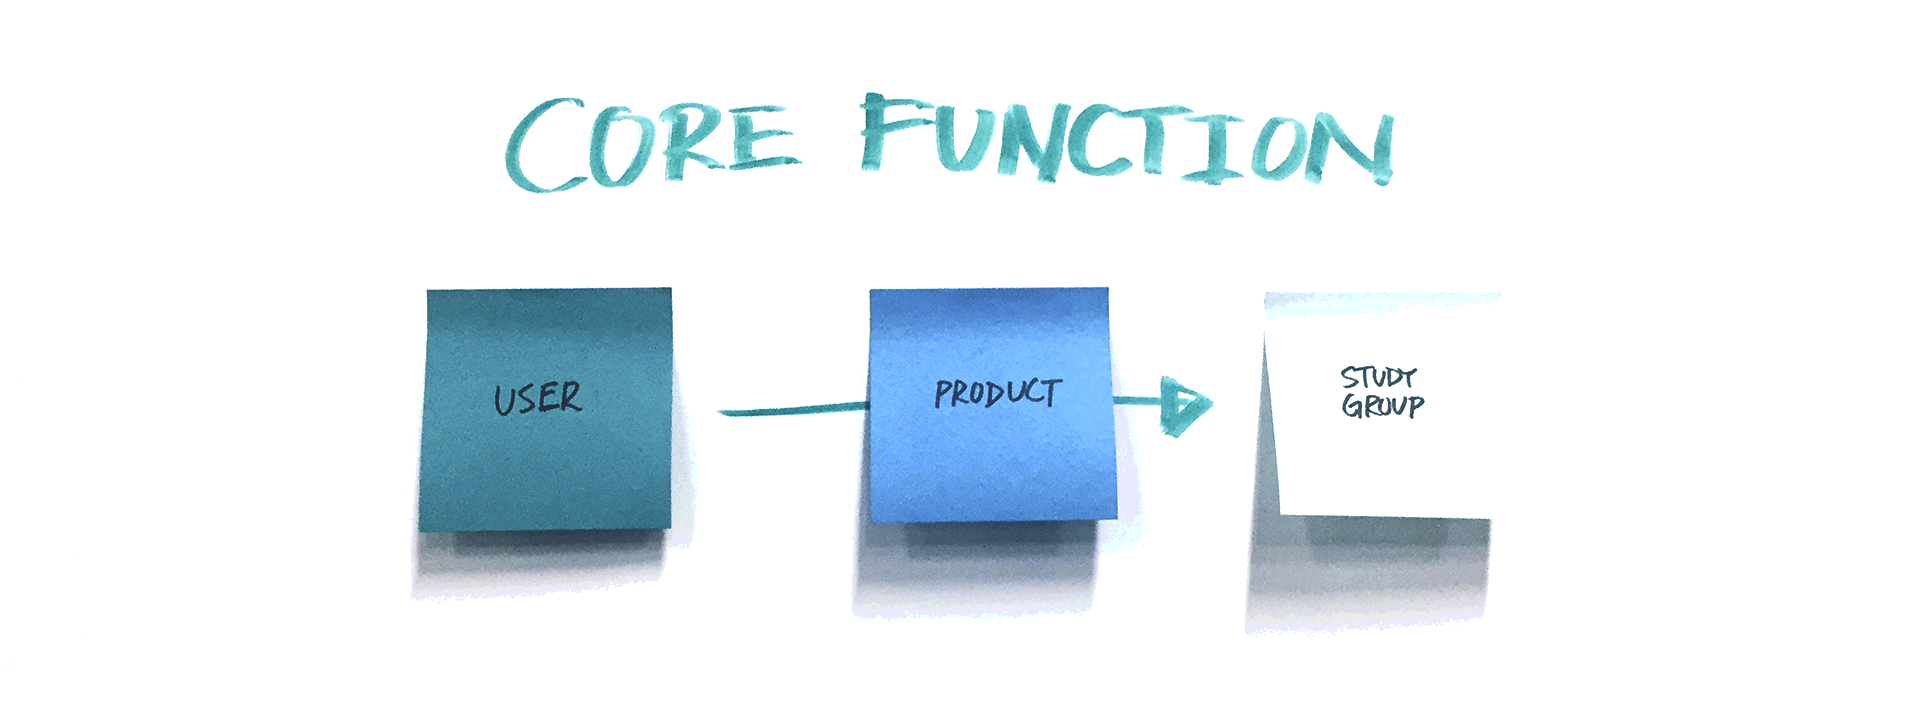 CORE FUNCTION
USER
PRODUCT
STUDY
GROUP